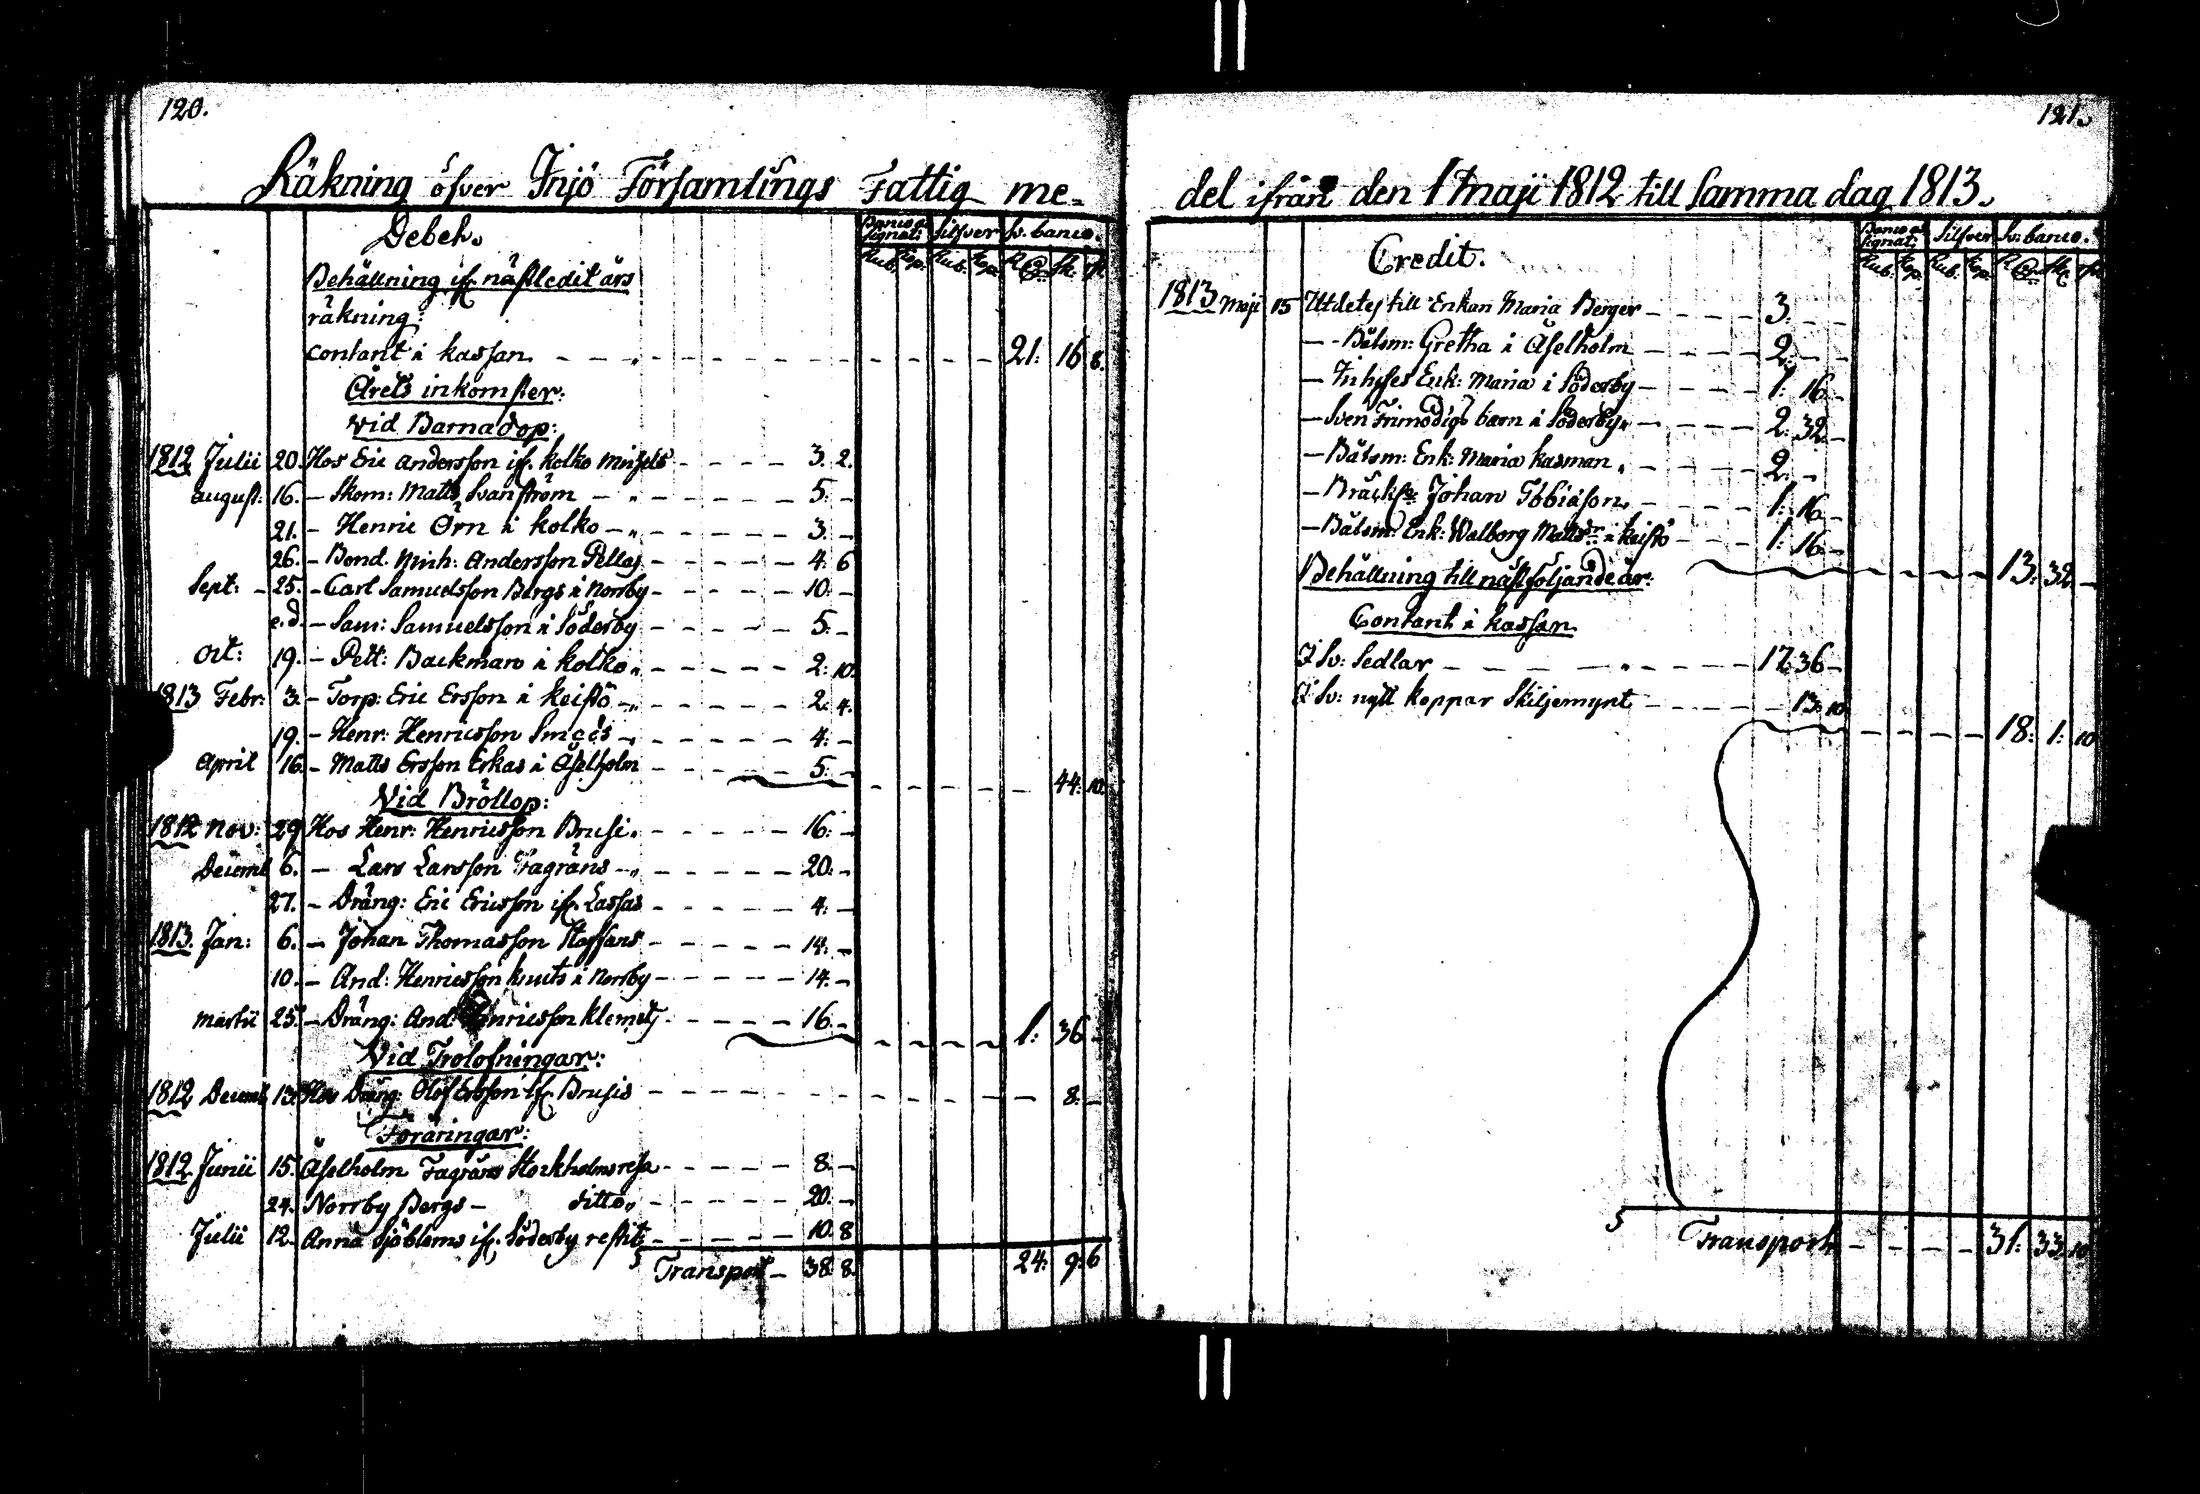 120.
Räkning öfver Iniö Församlings Fattig me-
Debet.
Banco as signat: Silfver Sv. banco.
Rub. Kop. Rub. Kop. R Sk. r.
Behållning ifr. nästledit års
räkning:
Contant i kassan. 21: 16 8.
Årets inkomster:
Vid Barnadop:
1812 Julii 20. Hos Eric Andersson ifr. Kolko 3. 2.
August: 16. Skom: Matts Svanström 5. -
21. - Henric Örn i Kolko 3. -
26. - Bond. Mich: Andersson Pellas 4. 6
Sept: - 25. - Carl Samuelsson Bergs i Norrby 10. -
e.d. - Sam: Samuelsson i Söderby 5. -
Oct: 19. - Pett: Backman i Kolko 2: 10.
1813 Febr: 3. - Torp: Eric Ersson i Keistö 2. 4.
19. - Henr: Henricsson 4. -
April 16. - Matts Ersson Erkas i Åselholm 5. - 44: 10.
Vid Bröllop:
1812 Nov: 29 Hos Henr: Henricsson Brusi. 16: -
Decemb 6. - Lars Larsson Fagräns 20: -
27. - Dräng: Eric Ericsson ifr. Lassas 4: -
1813. Jan: 6. - Johan Thomasson Staffans 14: -
10. - And: Henricsson Knuts i Norrby 14. -
Martii 25. - Dräng: And: Henricsson Klemets 16. - 1: 36 -
Vid Trolofningar:
1812 Decemb 13. Hos Dräng: Olof Ersson ifr. Brusis 8: -
Föräringar:
1812 Junii 15. Åselholm Fagräns Stockholmsresa 8. -
24. Norrby Bergs - ditto 20. -
Julii 12. Anna Sjöbloms ifr. Söderby restit 10. 8
Transport - 38. 8. 24: 9: 6
121.
del ifrån den 1 Maji 1812 till samma dag 1813.
Credit.
Banco as signat: Silfver Sv: banco.
Rub. Kop. Rub. Kop. R Sk. r.
1813 Maji 15 Utdeles till Enkan Maria Berger 3: - -
- Båtsm: Gretha i Åselholm 2: - -
- Enk: Maria i Söderby 1: 16. -
- Sven Frimodigs barn i Söderby 2: 32. -
- Båtsm: Enk: Maria Kasman 2: - -
- Johan Tobiasson 1: 16. -
- Båtsm: Enk: Walborg Mattsdr i Keistö 1: 16. -
Behållning till nästföljande år: 13: 32 -
Contant i kassan
I Sv: Sedlar 17: 36 -
I Sv: nytt koppar Skiljemynt 13: 10
18: 1: 10
Transport 31: 33: 10